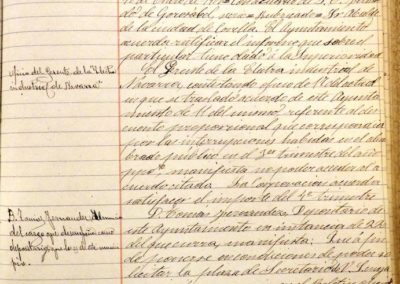 de la ciudad de Corella. El Ayuntamiento
acuerda ratificar el informe que sobre el
particular tiene dado á la Superioridad
Oficio del Gerente de la "Electra
industrial de Navarra"
El Gerente de la Electra industrial de
Navarra, contestando oficio de 1º del actual
en que se trasladó acuerdo de este Ayunta
miento de 1º del mismo, referente al des
cuento proporcional que correspondia
por las interrupciones habidas en el alum
brado publico en el 3er trimestre del año
ppº. manifiesta no poder acceder al a
cuerdo citado. La Corporacion acuerda
satisfacer el importe del 4º trimestre
D. Tomas Fernandez
del cargo que desempeña como
depositario
D. Tomas Fernandez Depositario de
este Ayuntamiento en instancia de 22
del que cursa, manifiesta: Que á fin
de ponerse en condiciones de poder so
licitar la plaza de Secretario